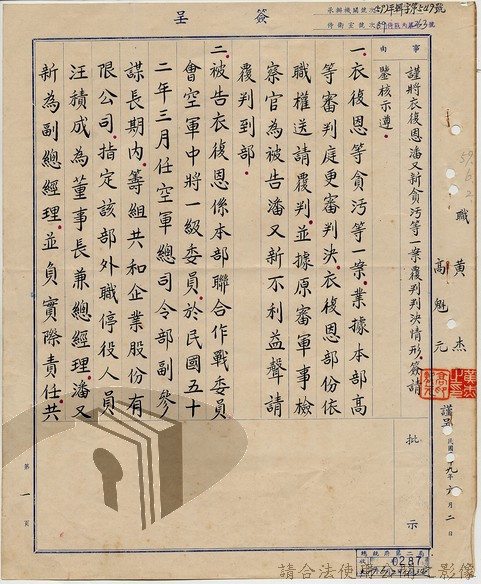 簽呈
承辦機關號次
侍衛室號次
事由
謹將衣復恩潘又新貪污等一案覆判判決情形簽請
鑒核示遵
職黃杰
高魁元
謹呈
民國五九年六月二日
批示
一、衣復恩等貪污等一案業據本部高
等審判庭更審判決衣復恩部份依
職權送請覆判並據原審軍事檢
察官為被告潘又新不利益聲請
覆判到部
二、被告衣復恩係本部聯合作戰委員
會空軍中將一級委員於民國五十
二年三月任空軍總司令部副參
謀長期內籌組共和企業股份有
限公司指定該部外職停役人員
汪積成為董事長兼總經理潘又
新為副總經理並負實際責任共
第一頁
總統府第二局
0287
請合法使用
影像